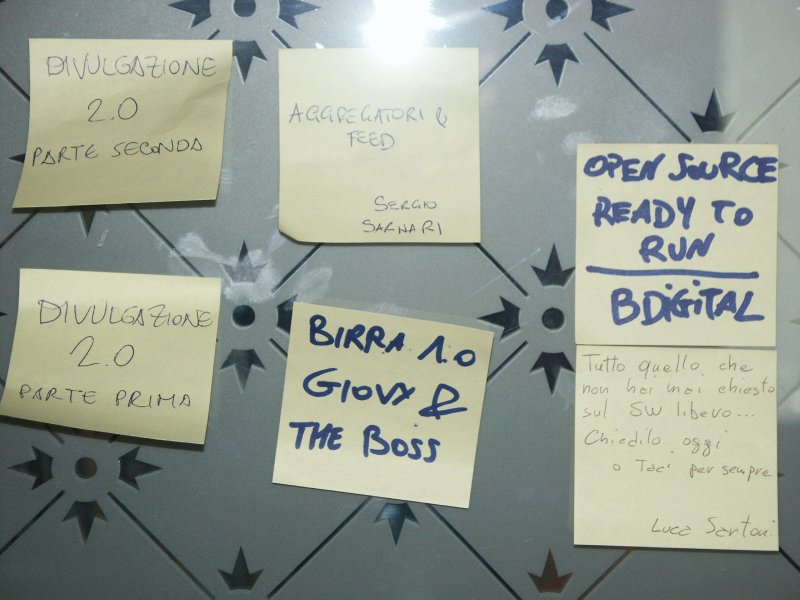 DIVULGAZIONE
2.0
PARTE SECONDA
AGGREGATORI &
FEED
SERGIO
SARNARI
OPEN SOURCE
READY TO
RUN
BDiGiTAL
DIVULGAZIONE
2.0
PARTE PRIMA
BIRRA 1.0
GIOVY &
THE BOSS
Tutto quello che
non hai mai chiesto
sul SW libero...
Chiedilo oggi
o Taci per sempre
Luca Sartoni